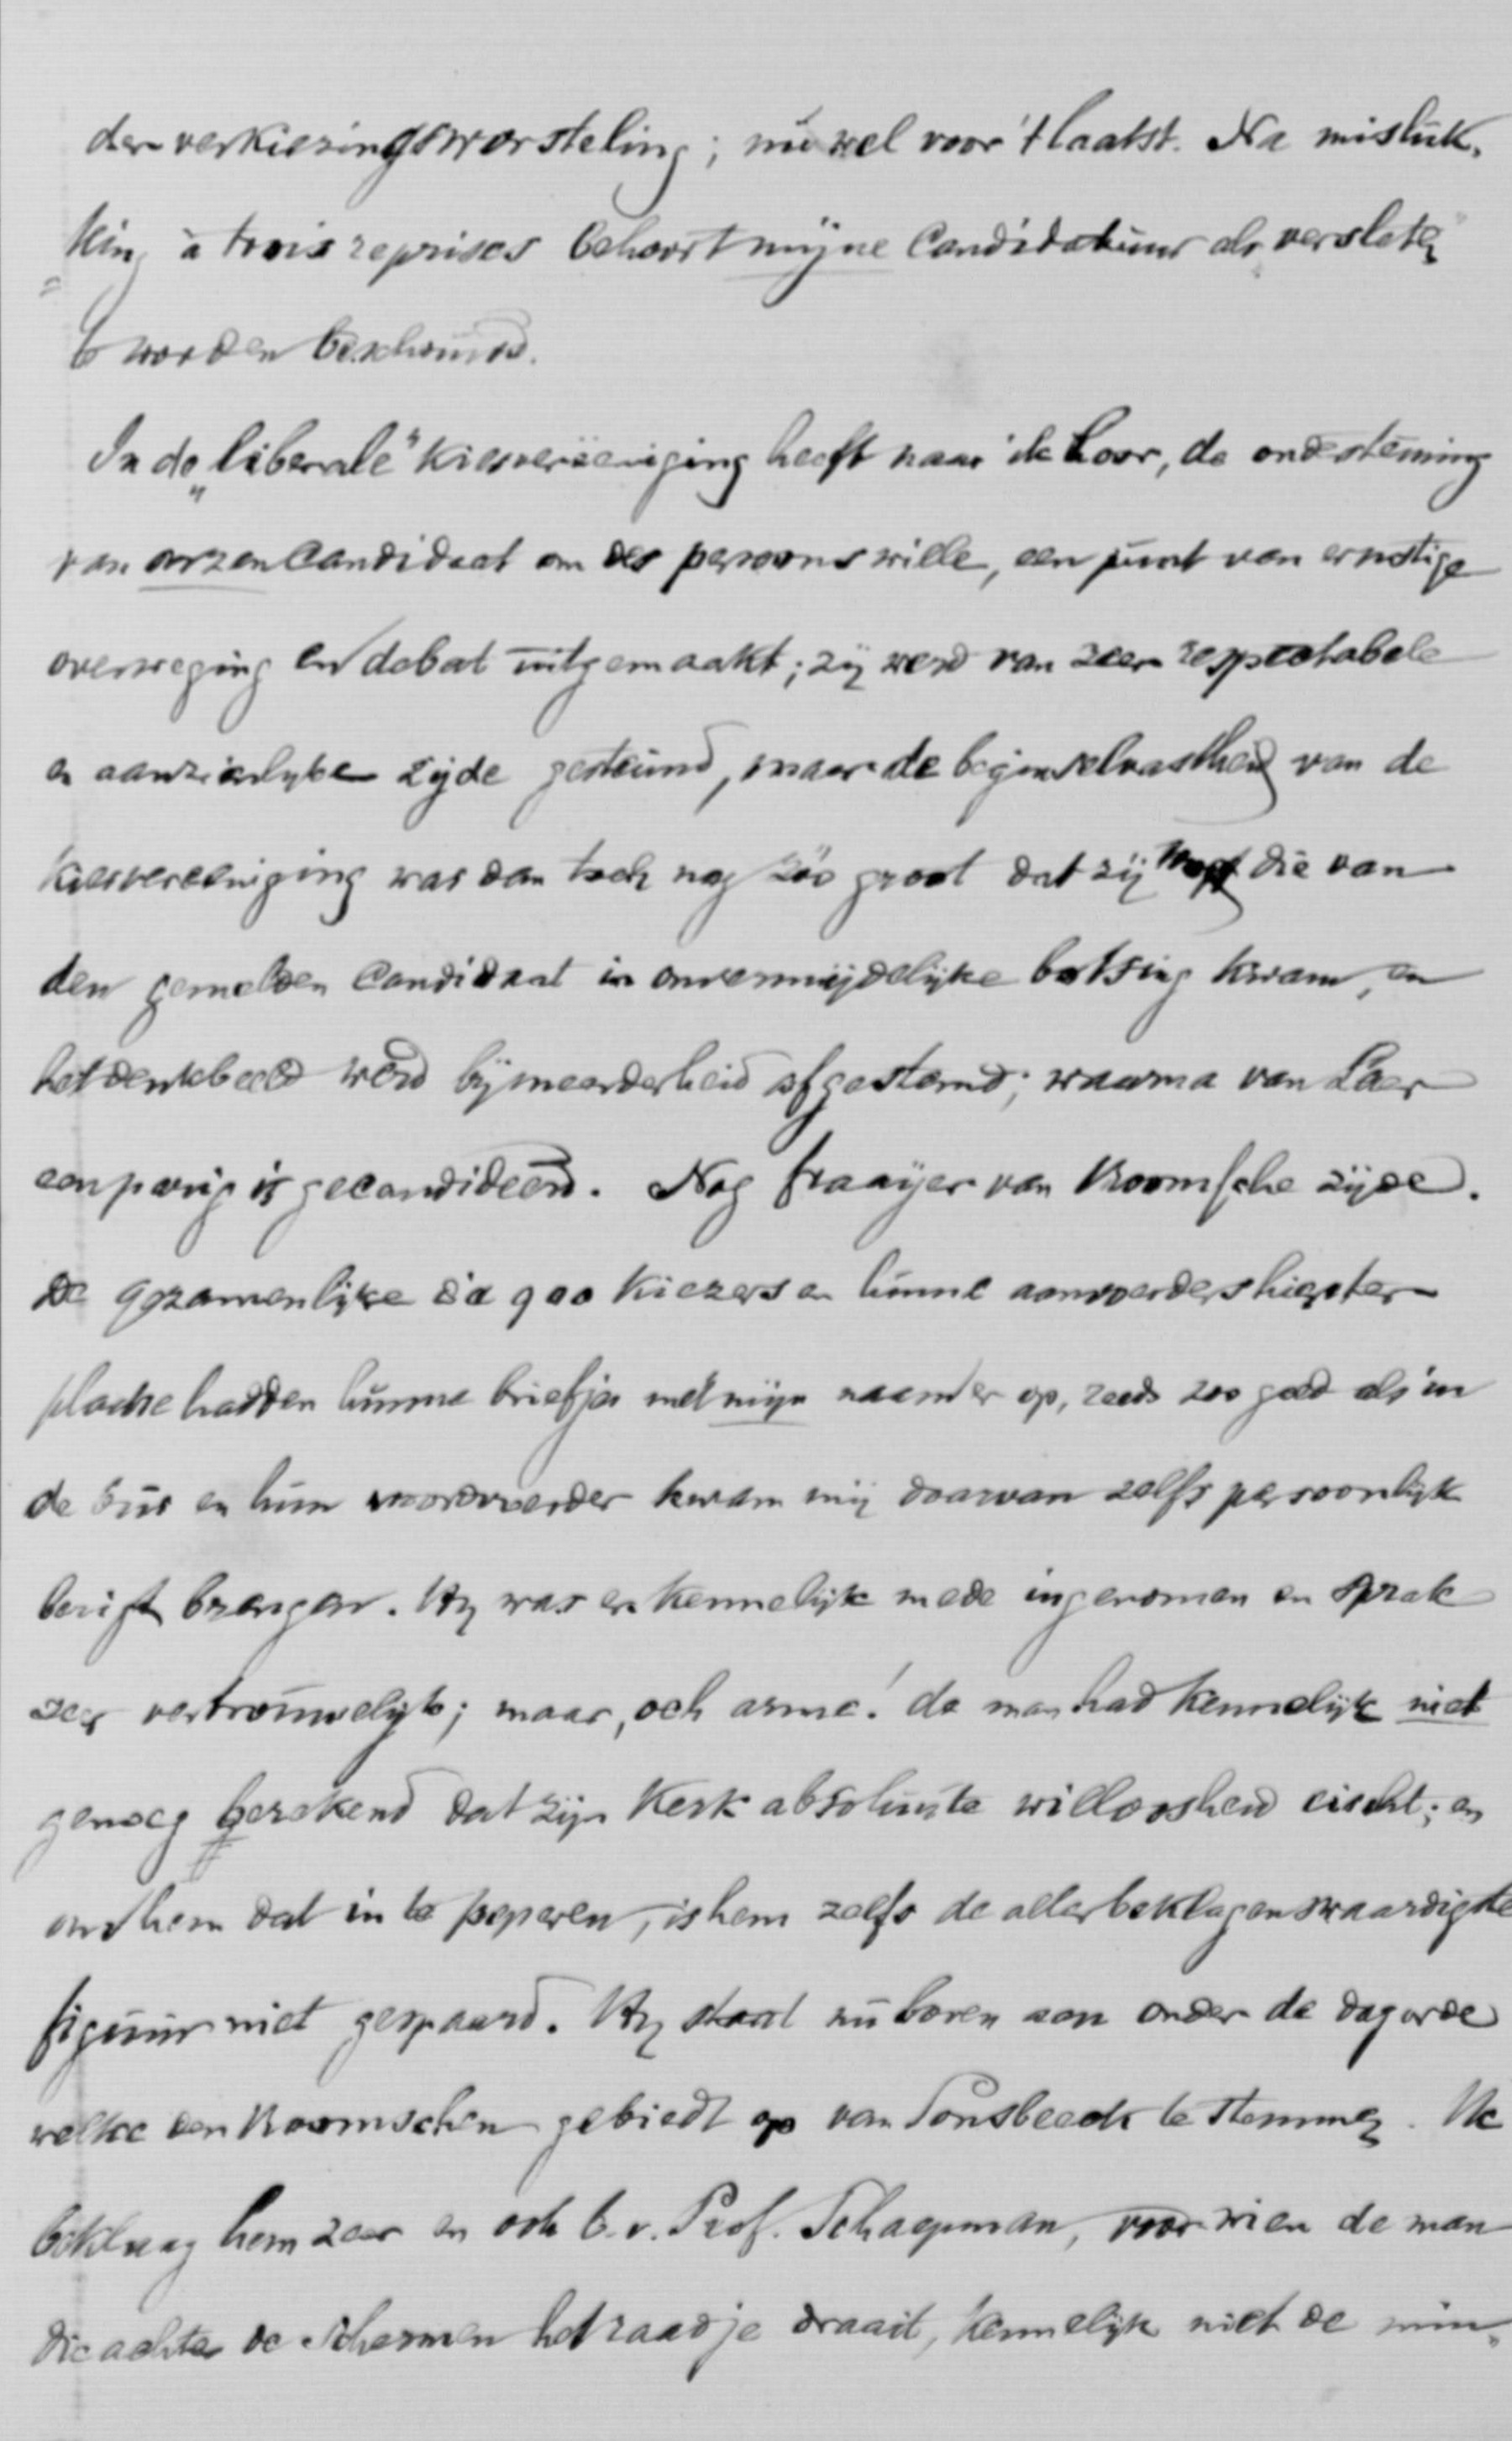 der verkiezingsworsteling; nu wel voor 't laatst. Na misluk-
king à trois reprises behoort mijne Candidatuur als versleten
te worden beschouwd.
In de „liberale" kiesvereeniging heeft naar ik hoor, de ondersteuning
van onzen Candidaat om des persoons wille, een punt van ernstige
overweging en debat uitgemaakt; zij werd van zeer respectabele
en aanzienlijke zijde gesteund, maar de beginselvastheid van de
kiesvereeniging was dan toch nog zóó groot dat zij met die van
den gemelden Candidaat in onvermijdelijke botsing kwam, en
het denkbeeld werd bij meerderheid afgestemd; waarna van Laer
eenparig is gecandideerd. Nog fraaijer van Roomsche zijde.
De gezamenlijke 900 kiezers en hunne aanvoerders hier ter
plaatse hadden hunne briefjes met mijn naam er op, reeds zoo goed als in
de bus en hun woordvoerder kwam mij daarvan zelfs persoonlijk
berigt brengen. Hij was er kennelijk mede ingenomen en sprak
zeer vertrouwelijk; maar, och arme! de man had kennelijk niet
genoeg gerekend dat zijn Kerk absoluute willoosheid eischt; en
om hem dat in te peperen, is hem zelfs de allerbeklagenswaardigste
figuur niet gespaard. Hij staat nu boven aan onder de dagorde
welke den Roomschen gebiedt op van Sonsbeeck te stemmen. Ik
beklaag hem zeer en ook b.v. Prof. Schaepman, voor wien de man
die achter de schermen het raadje draait, kennelijk niet de min-